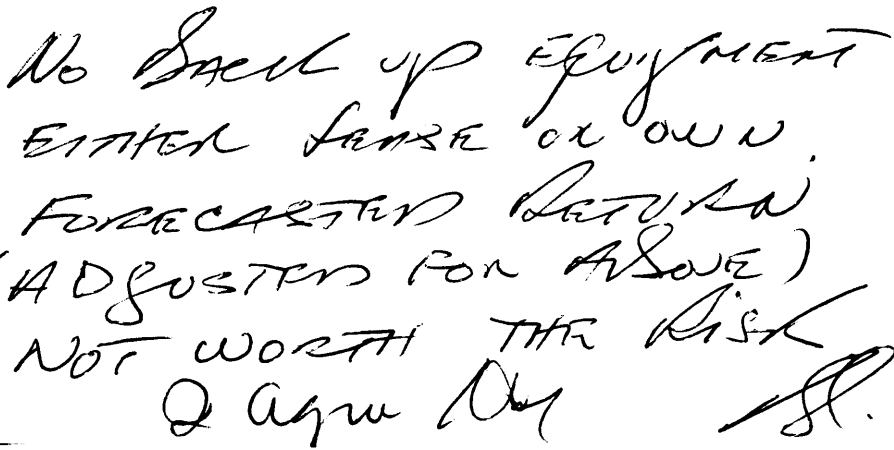 No BACK UP EQUIPMENT
EITHER LEASE OR OWN.
FORECASTED RETURN
(ADJUSTED FOR ABOVE)
NOT WORTH THE RISK
I agree